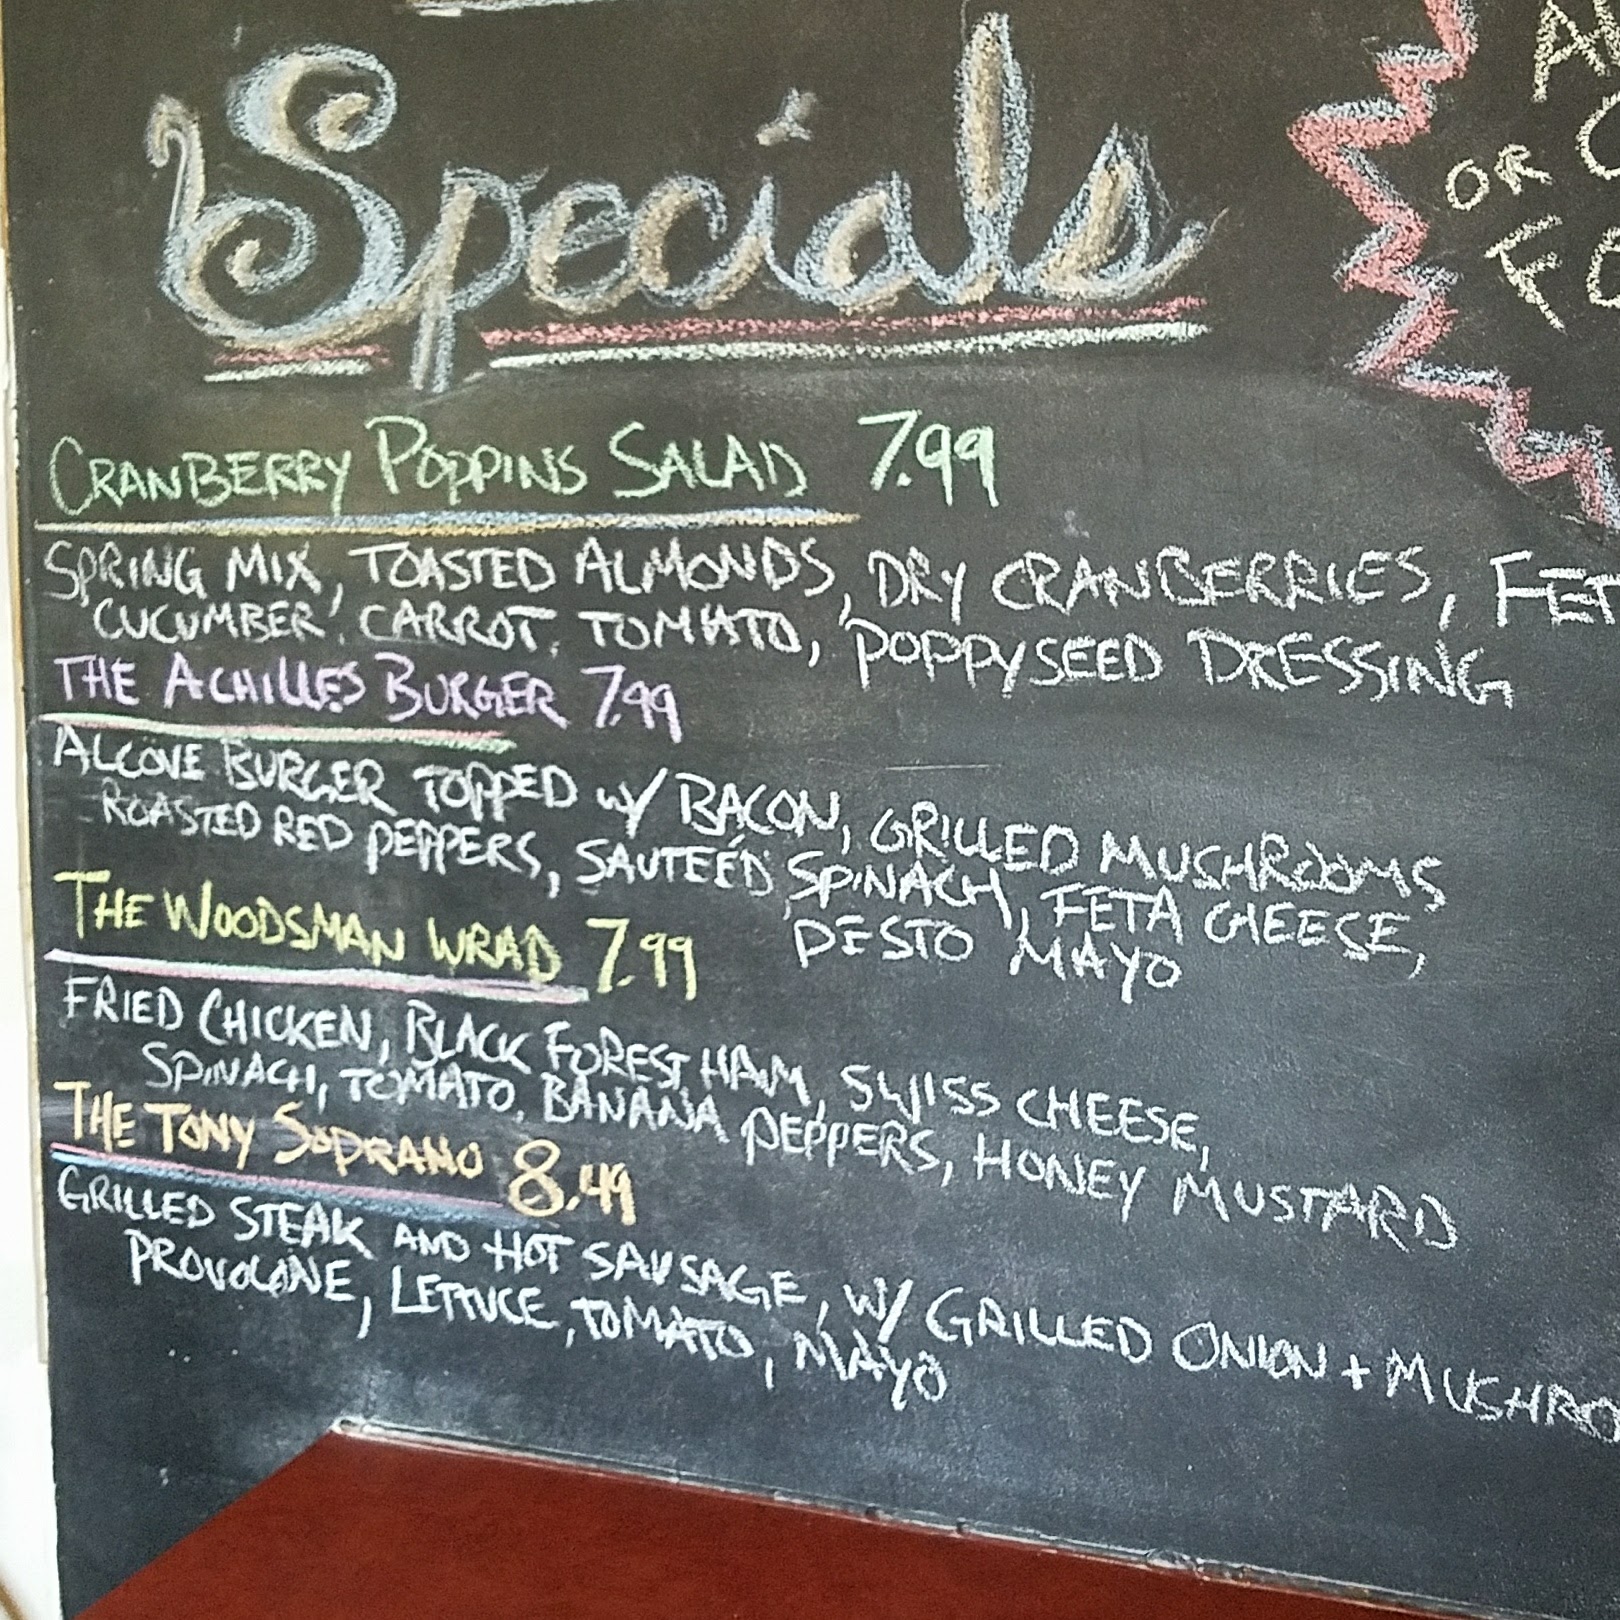 Specials
CRANBERRY POPPINS SALAD 7.99
SPRING MIX, TOASTED ALMONDS, DRY CRANBERRIES, FET
CUCUMBER, CARROT, TOMATO, POPPYSEED DRESSING
THE ACHILLES BURGER 7.99
ALCOVE BURGER TOPPED W/ BACON, GRILLED MUSHROOMS
ROASTED RED PEPPERS, SAUTEED SPINACH, FETA CHEESE,
PESTO MAYO
THE WOODSMAN WRAP 7.99
FRIED CHICKEN, BLACK FOREST HAM, SWISS CHEESE,
SPINACH, TOMATO, BANANA PEPPERS, HONEY MUSTARD
THE TONY SOPRANO 8.49
GRILLED STEAK AND HOT SAUSAGE, W/ GRILLED ONION + MUSHRO
PROVOLONE, LETTUCE, TOMATO, MAYO
OR